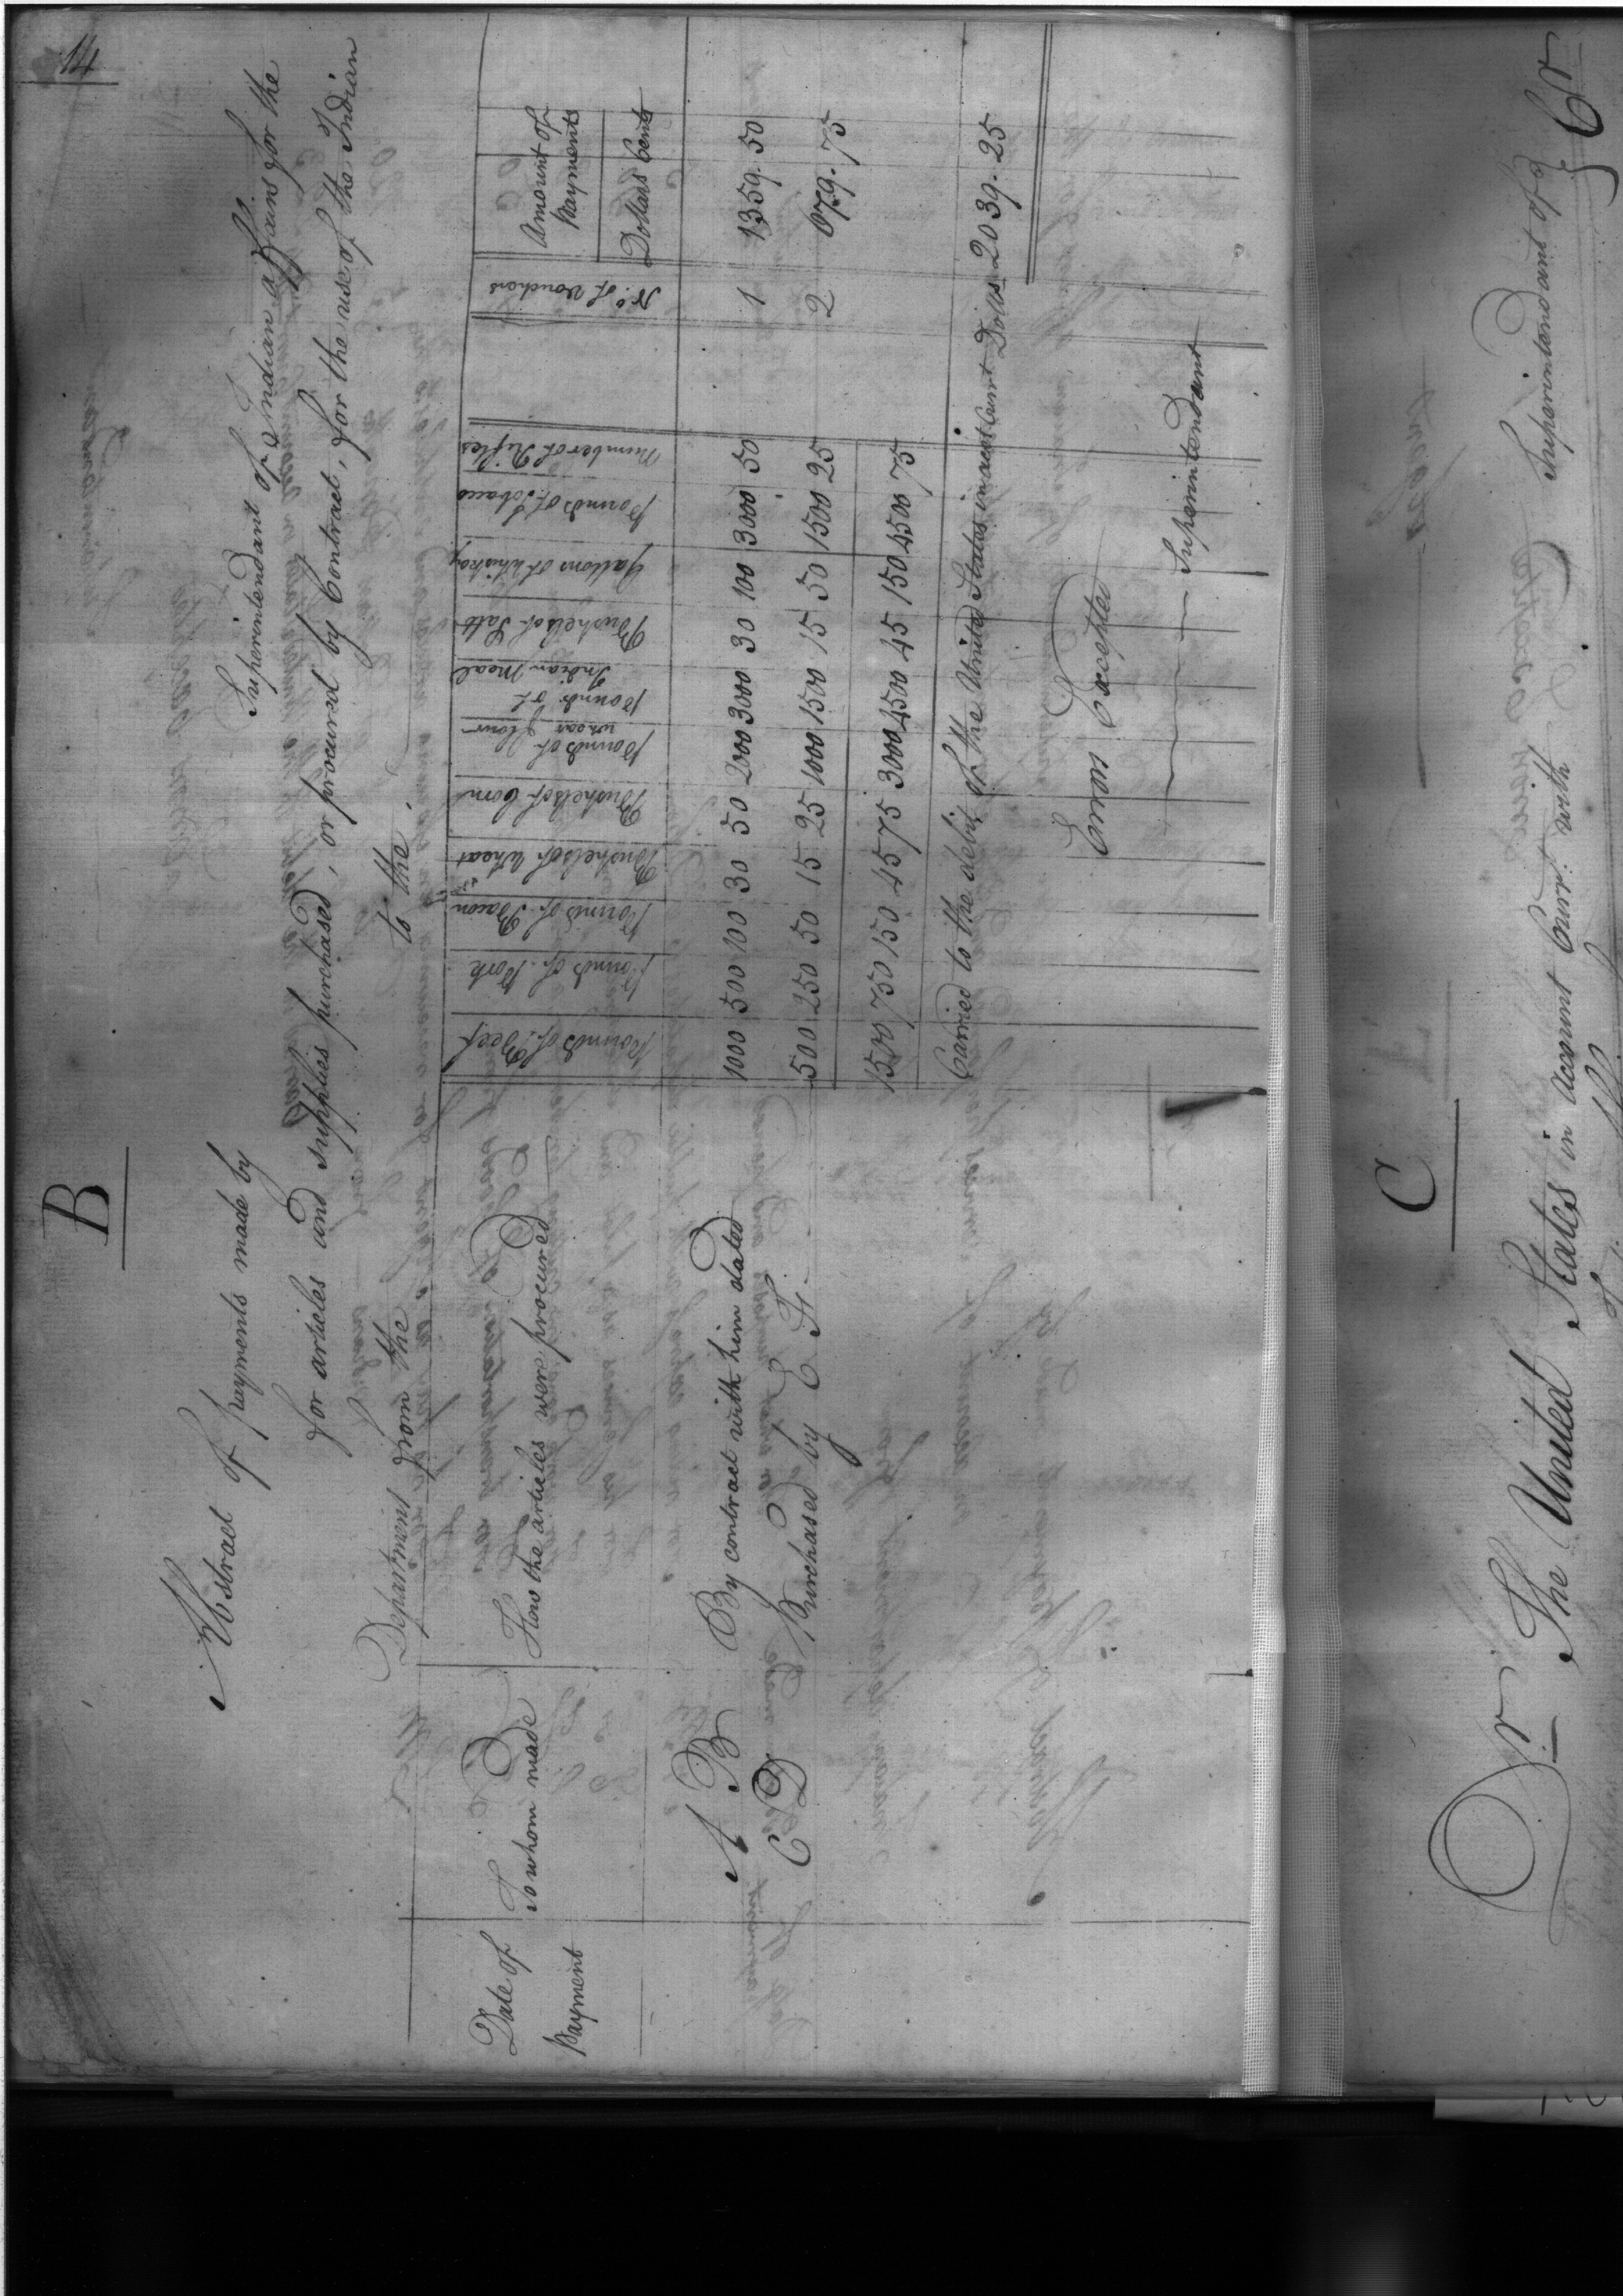 14
B
Abstract of payments made by Superintendant of Indian affairs for the
for articles and supplies purchased, or procured by Contract, for the use of the Indian
Department from the to the
Date of Payment
To whom made
How the articles were procured
Pounds of Beef
Pounds of Pork
Pounds of Bacon
Bushels of Wheat
Bushels of Corn
Pounds of wheat flour
Pounds of Indian Meal
Bushels of Salt
Gallons of Whiskey
Pounds of Tobacco
Number of Rifles
No. of Vouchers
Amount of Payments
Dollars Cents
A B By contract with him dated 1000 500 100 30 50 2000 3000 30 100 3000 50 1 1359. 50
C D Purchased by E F. 500 250 50 15 25 1000 1500 15 50 1500 25 2 679. 75
1500 750 150 45 75 3000 4500 45 150 4500 75
Carried to the debit of the United States in acct Curnt Dolls 2039. 25
Errors Excepted
Superintendant
C
Dr The United States in account Curr: with Superintendant of Cr